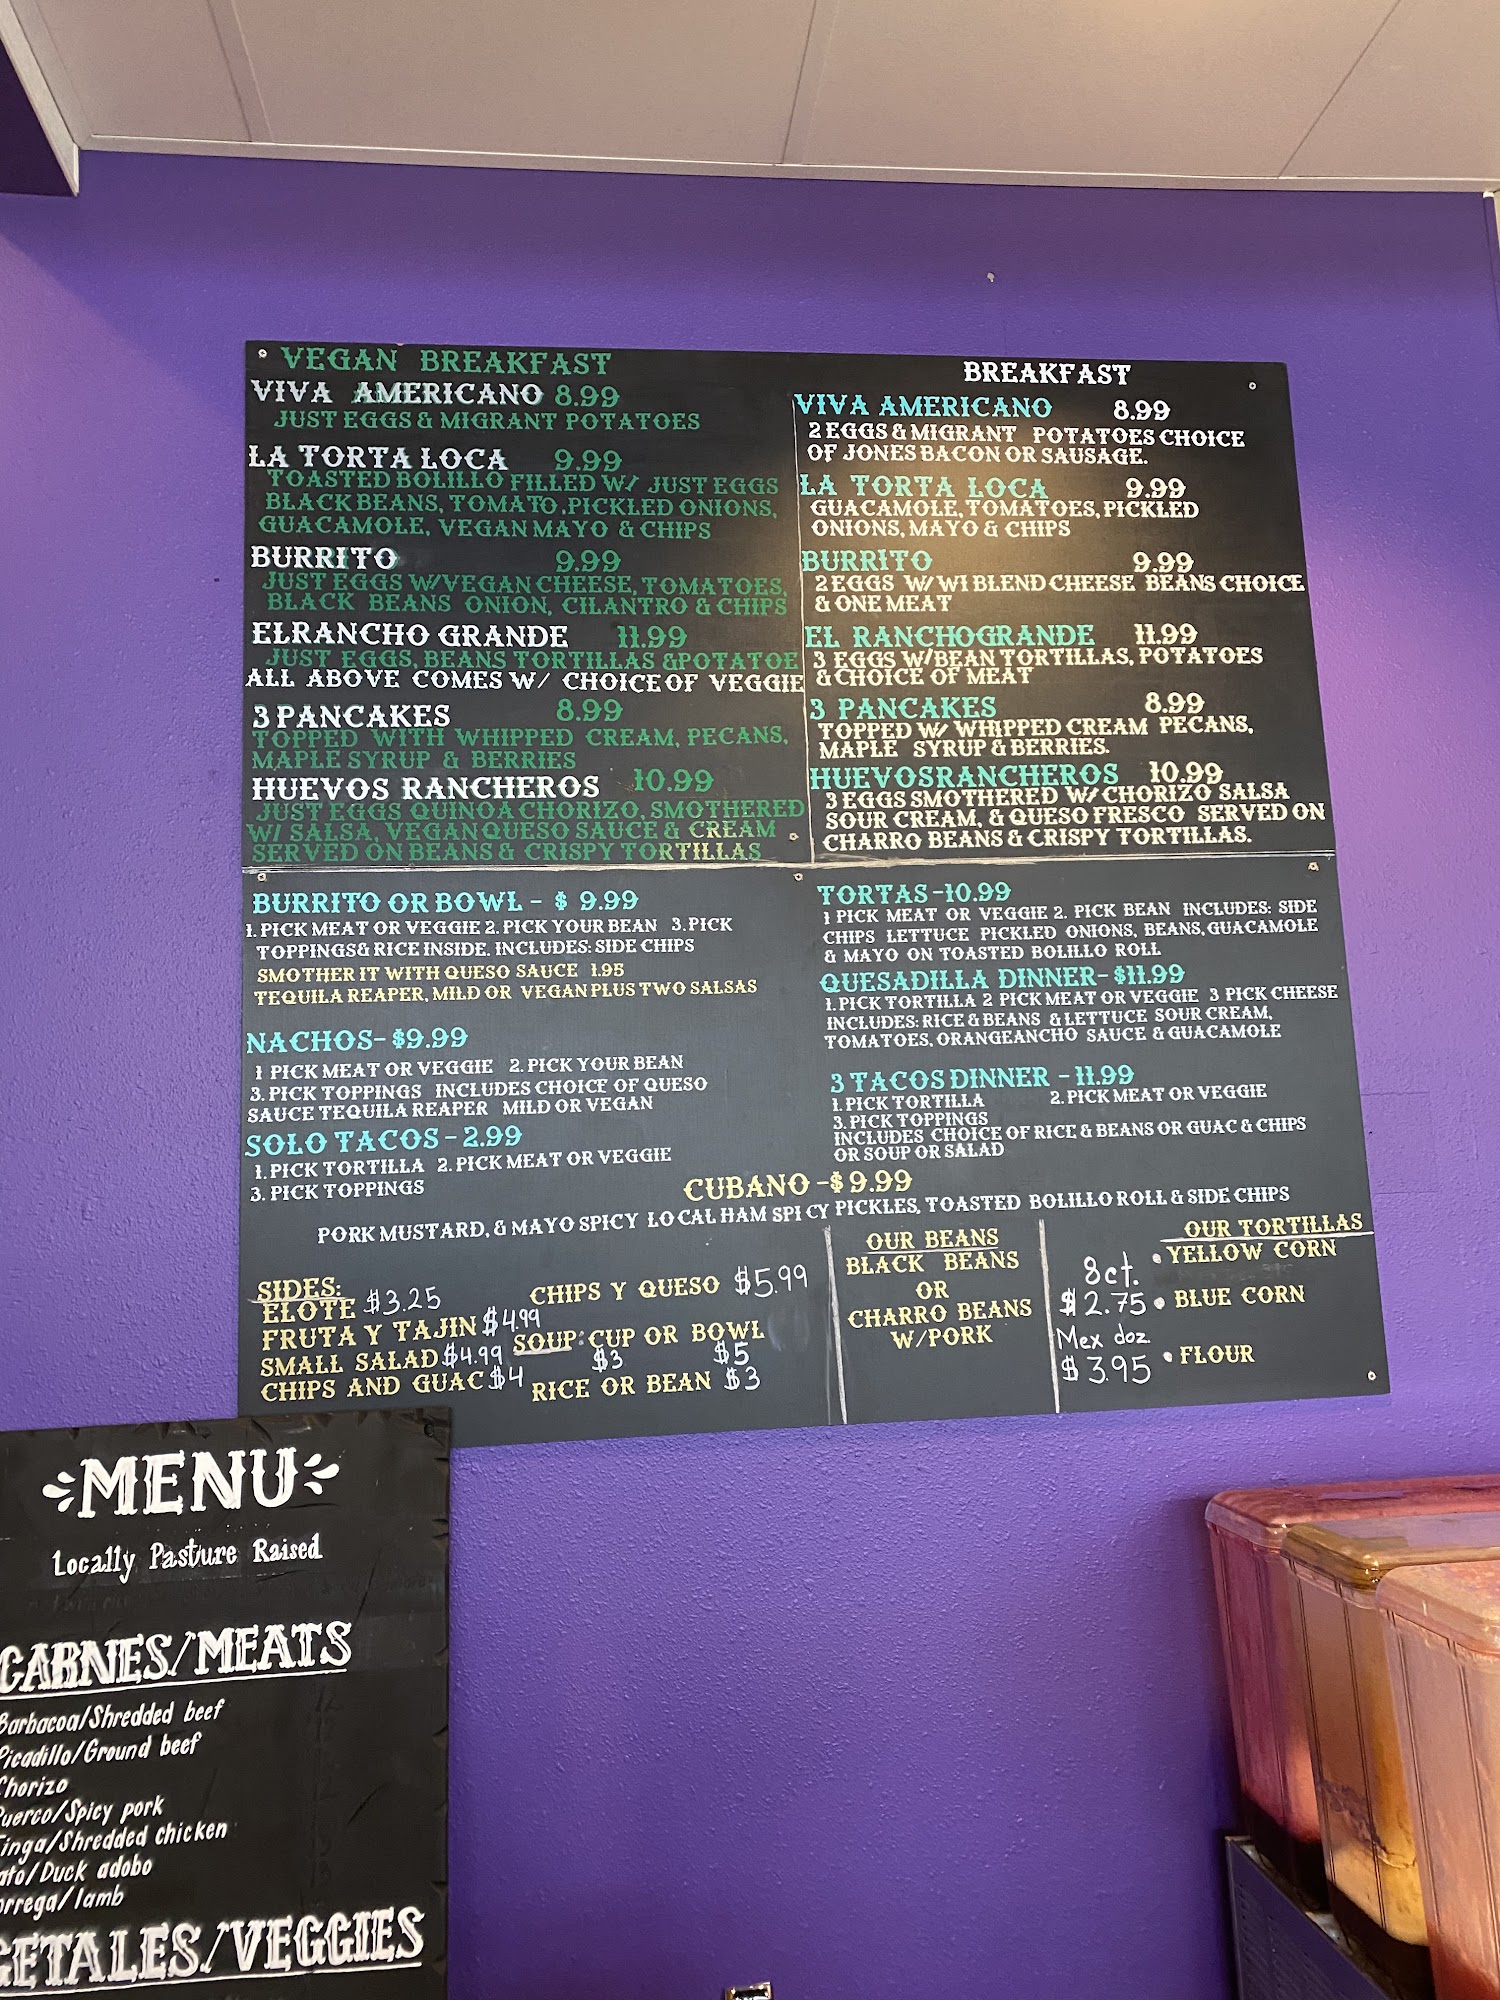 VEGAN BREAKFAST
VIVA AMERICANO 8.99
JUST EGGS & MIGRANT POTATOES
LA TORTA LOCA 9.99
TOASTED BOLILLO FILLED W/ JUST EGGS
BLACK BEANS, TOMATO, PICKLED ONIONS,
GUACAMOLE, VEGAN MAYO & CHIPS
BURRITO 9.99
JUST EGGS W/VEGAN CHEESE, TOMATOES,
BLACK BEANS ONION, CILANTRO & CHIPS
EL RANCHO GRANDE 11.99
JUST EGGS, BEANS TORTILLAS & POTATOE
ALL ABOVE COMES W/ CHOICE OF VEGGIE
3 PANCAKES 8.99
TOPPED WITH WHIPPED CREAM, PECANS,
MAPLE SYRUP & BERRIES
HUEVOS RANCHEROS 10.99
JUST EGGS QUINOA CHORIZO, SMOTHERED
W/ SALSA, VEGAN QUESO SAUCE & CREAM
SERVED ON BEANS & CRISPY TORTILLAS
BREAKFAST
VIVA AMERICANO 8.99
2 EGGS & MIGRANT POTATOES CHOICE
OF JONES BACON OR SAUSAGE.
LA TORTA LOCA 9.99
GUACAMOLE, TOMATOES, PICKLED
ONIONS, MAYO & CHIPS
BURRITO 9.99
2 EGGS W/ WI BLEND CHEESE BEANS CHOICE
& ONE MEAT
EL RANCHO GRANDE 11.99
3 EGGS W/BEAN TORTILLAS, POTATOES
& CHOICE OF MEAT
3 PANCAKES 8.99
TOPPED W/ WHIPPED CREAM PECANS,
MAPLE SYRUP & BERRIES.
HUEVOS RANCHEROS 10.99
3 EGGS SMOTHERED W/ CHORIZO SALSA
SOUR CREAM, & QUESO FRESCO SERVED ON
CHARRO BEANS & CRISPY TORTILLAS.
BURRITO OR BOWL - $ 9.99
1. PICK MEAT OR VEGGIE 2. PICK YOUR BEAN 3. PICK
TOPPINGS& RICE INSIDE. INCLUDES: SIDE CHIPS
SMOTHER IT WITH QUESO SAUCE 1.95
TEQUILA REAPER, MILD OR VEGAN PLUS TWO SALSAS
NACHOS- $9.99
1 PICK MEAT OR VEGGIE 2. PICK YOUR BEAN
3. PICK TOPPINGS INCLUDES CHOICE OF QUESO
SAUCE TEQUILA REAPER MILD OR VEGAN
SOLO TACOS - 2.99
1. PICK TORTILLA 2. PICK MEAT OR VEGGIE
3. PICK TOPPINGS
TORTAS -10.99
1 PICK MEAT OR VEGGIE 2. PICK BEAN INCLUDES: SIDE
CHIPS LETTUCE PICKLED ONIONS, BEANS, GUACAMOLE
& MAYO ON TOASTED BOLILLO ROLL
QUESADILLA DINNER- $11.99
1. PICK TORTILLA 2 PICK MEAT OR VEGGIE 3 PICK CHEESE
INCLUDES: RICE & BEANS & LETTUCE SOUR CREAM,
TOMATOES, ORANGEANCHO SAUCE & GUACAMOLE
3 TACOS DINNER - 11.99
1. PICK TORTILLA 2. PICK MEAT OR VEGGIE
3. PICK TOPPINGS
INCLUDES CHOICE OF RICE & BEANS OR GUAC & CHIPS
OR SOUP OR SALAD
CUBANO -$ 9.99
PORK MUSTARD, & MAYO SPICY LOCAL HAM SPICY PICKLES, TOASTED BOLILLO ROLL & SIDE CHIPS
SIDES:
ELOTE $3.25
FRUTA Y TAJIN $4.99
SMALL SALAD $4.99
CHIPS AND GUAC $4
CHIPS Y QUESO $5.99
SOUP: CUP OR BOWL
$3 $5
RICE OR BEAN $3
OUR BEANS
BLACK BEANS
OR
CHARRO BEANS
W/PORK
OUR TORTILLAS
8ct. • YELLOW CORN
$2.75 • BLUE CORN
Mex doz
$3.95 • FLOUR
MENU
Locally Pasture Raised
CARNES/MEATS
Barbacoa/Shredded beef
Picadillo/Ground beef
Chorizo
Puerco/Spicy pork
Tinga/Shredded chicken
ato/Duck adobo
orrega/lamb
GETALES/VEGGIES